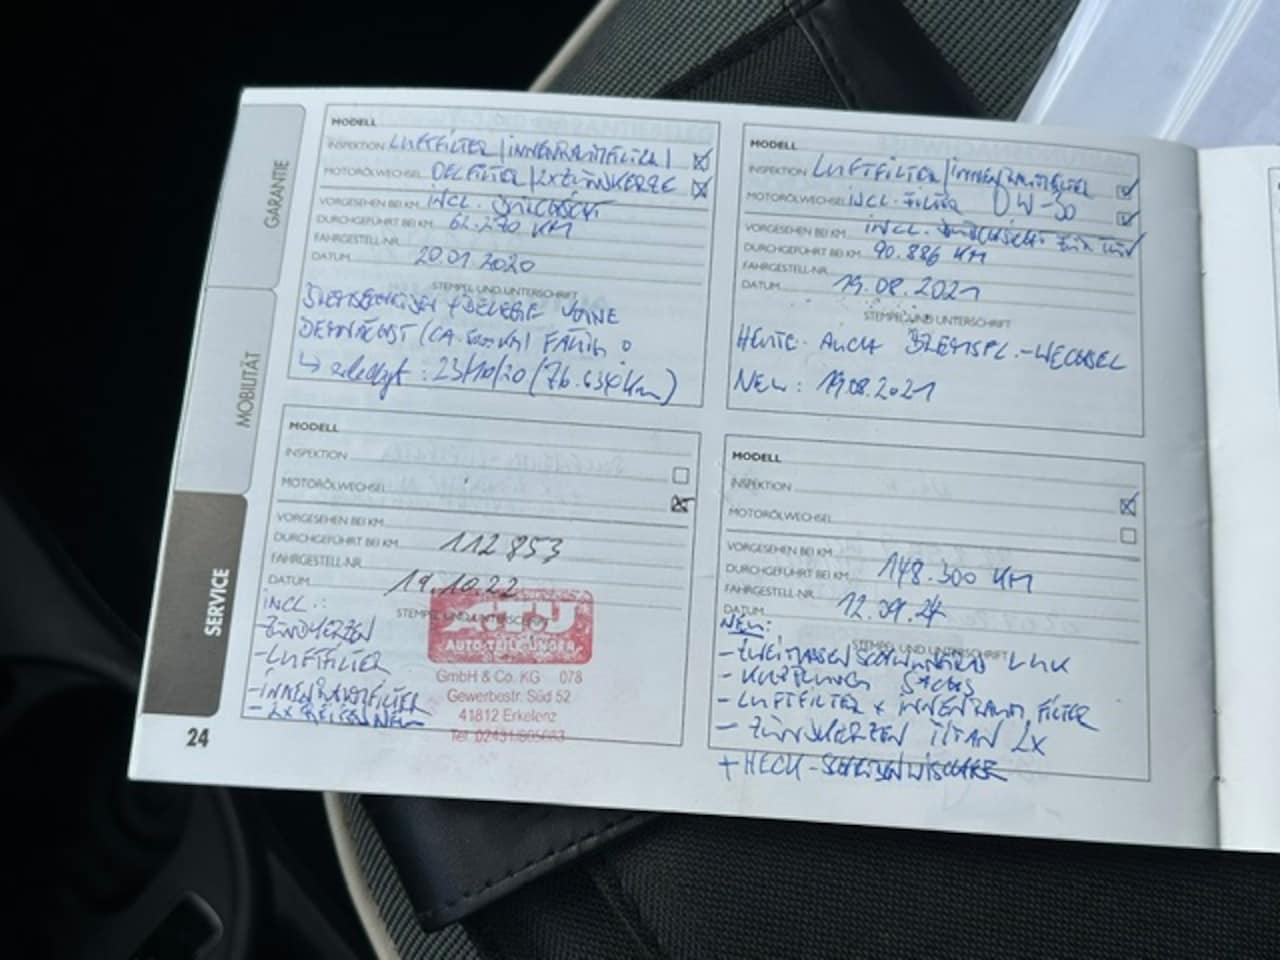 GARANTIE
MOBILITÄT
SERVICE
24
MODELL
INSPEKTION LUFTFILTER | INNENRAUMFILTER |
MOTORÖLWECHSEL OELFILTER | 2X ZÜNDKERZE
VORGESEHEN BEI KM INCL.
DURCHGEFÜHRT BEI KM 62.270 KM
FAHRGESTELL-NR.
DATUM 20.01.2020
STEMPEL UND UNTERSCHRIFT
BREMSSCHEIBEN + BELEGE VORNE
DEMNÄCHST (CA. KM) FÄLLIG
↳ erledigt: 23/10/20 (76.634 Km)
MODELL
INSPEKTION LUFTFILTER | INNENRAUMFILTER
MOTORÖLWECHSEL INCL. FILTER 0W-30
VORGESEHEN BEI KM INCL.
DURCHGEFÜHRT BEI KM 90.886 KM
FAHRGESTELL-NR.
DATUM 19.08.2021
STEMPEL UND UNTERSCHRIFT
HEUTE AUCH BREMSFL.-WECHSEL
NEU: 19.08.2021
MODELL
INSPEKTION
MOTORÖLWECHSEL
VORGESEHEN BEI KM
DURCHGEFÜHRT BEI KM 112 853
FAHRGESTELL-NR.
DATUM 19.10.22
STEMPEL UND UNTERSCHRIFT
INCL.:
- ZÜNDKERZEN
- LUFTFILTER
- INNENRAUMFILTER
- 2X REIFEN NEU
ATU
AUTO-TEILE-UNGER
GmbH & Co. KG 078
Gewerbestr. Süd 52
41812 Erkelenz
Tel. 02431/
MODELL
INSPEKTION
MOTORÖLWECHSEL
VORGESEHEN BEI KM
DURCHGEFÜHRT BEI KM 148.300 KM
FAHRGESTELL-NR.
DATUM 12.09.24
STEMPEL UND UNTERSCHRIFT
NEU:
- ZWEIMASSENSCHWUNGRAD LUK
- KUPPLUNG SACHS
- LUFTFILTER + INNENRAUM FILTER
- ZÜNDKERZEN TITAN 2X
+ HECK-SCHEIBENWISCHER